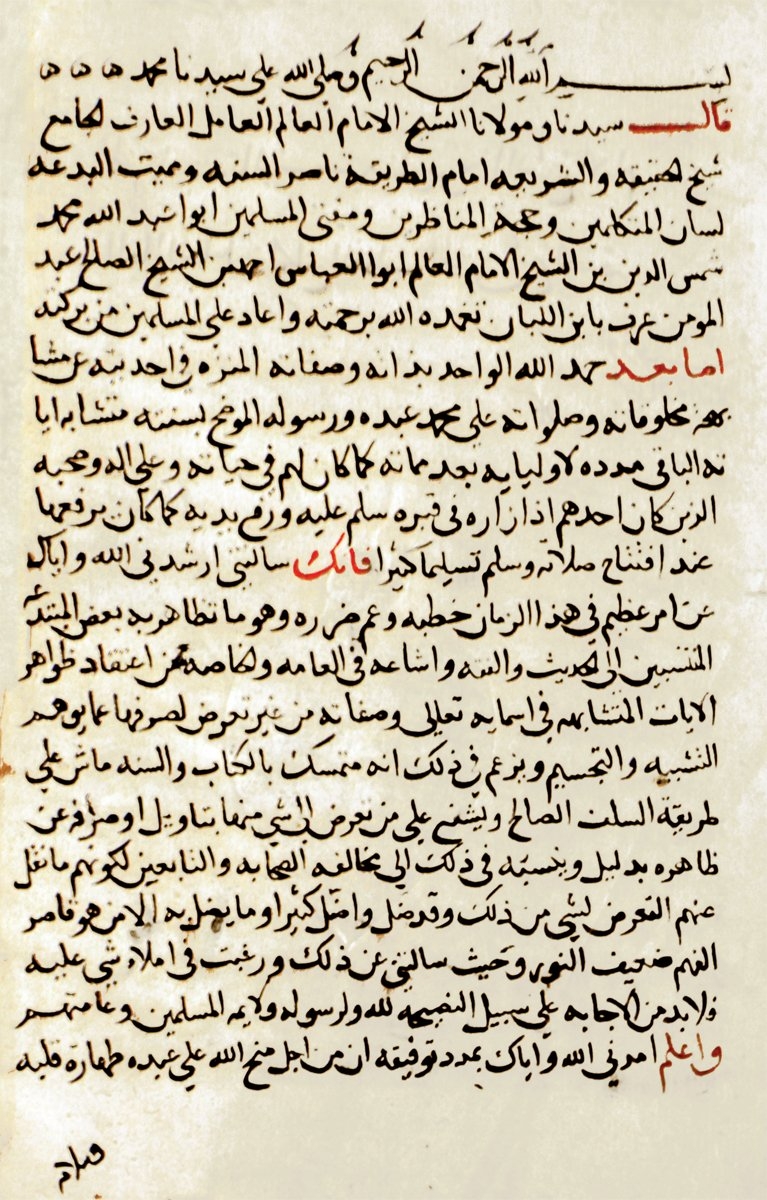 بسم الله الرحمن الرحيم وصلى الله على سيدنا محمد ه ه ه
قال سيدنا ومولانا الشيخ الامام العالم العامل العارف الجامع
شيخ الحقيقه والشريعه امام الطريقة ناصر السنه ومميت البدعه
لسان المتكلمين وحجة المناظرين ومفتى المسلمين ابو اشهد الله محمد
شمس الدين بن الشيخ الامام العالم ابوا العباس احمد بن الشيخ الصالح عبد
المومن عرف بابن اللبان تغمده الله برحمته واعاد على المسلمين من بركته
اما بعد حمد الله الواحد بذاته وصفاته المنزه فى احديته عن مشا
بهة مخلوقاته وصلواته على محمد عبده ورسوله الموضح بسنته متشابه ايا
ته الباقى مدده لاوليايه بعد مماته كما كان لهم فى حياته وعلى اله وصحبه
الذين كان احدهم اذا زاره فى قبره سلم عليه ورفع يديه كما كان يرفعها
عند افتتاح صلاته وسلم تسليما كثيرا فانك سالتنى ارشدنى الله واياك
عن امر عظيم فى هذا الزمان خطبه وعم ضرره وهو ما تظاهر به بعض المبتدعة
المنتسبين الى الحديث والسنه واشاعه فى العامه والخاصه من اعتقاد ظواهر
الايات المتشابهه فى اسمايه تعالى وصفاته من غير تعرض لصرفها عما يوهم
التشبيه والتجسيم ويزعم فى ذلك انه متمسك بالكتاب والسنه ماش على
طريقة السلف الصالح ويشنع على من تعرض الى شى منها بتاويل او صرفه عن
ظاهره بدليل وينسبه فى ذلك الى مخالفه الصحابه والتابعين لكونهم ما نقل
عنهم التعرض لشى من ذلك وقد ضل واضل كثيرا وما يضل به الا من هو قاصر
الفهم ضعيف النور وحيث سالتنى عن ذلك ورغبت فى املاء شى عليه
فلا بد من الاجابه على سبيل النصيحه لله ولرسوله ولايمه المسلمين وعامتهم
واعلم امدنى الله واياك بمدد توفيقه ان من اجل منح الله على عبده طهارة قلبه